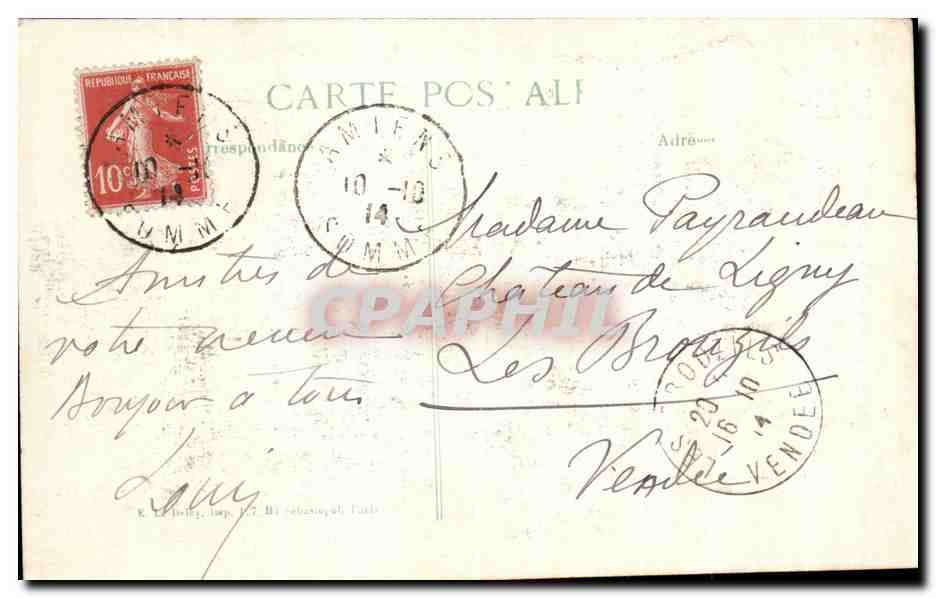 CARTE POSTALE
REPUBLIQUE FRANCAISE
10c
POSTES
AMIENS
*
10 -10
14
SOMME
AMIENS
*
10 -10
14
SOMME
Correspondance
Adresse
Amitiés de
votre neveu
Bonjour à tous
Louis
Madame Payraudeau
Château de Ligny
Les Brouzils
Vendée
LES BROUZILS
20
16 10
14
VENDEE
CPAPHIL
E. Le Deley, imp. 127, Bd Sébastopol, Paris